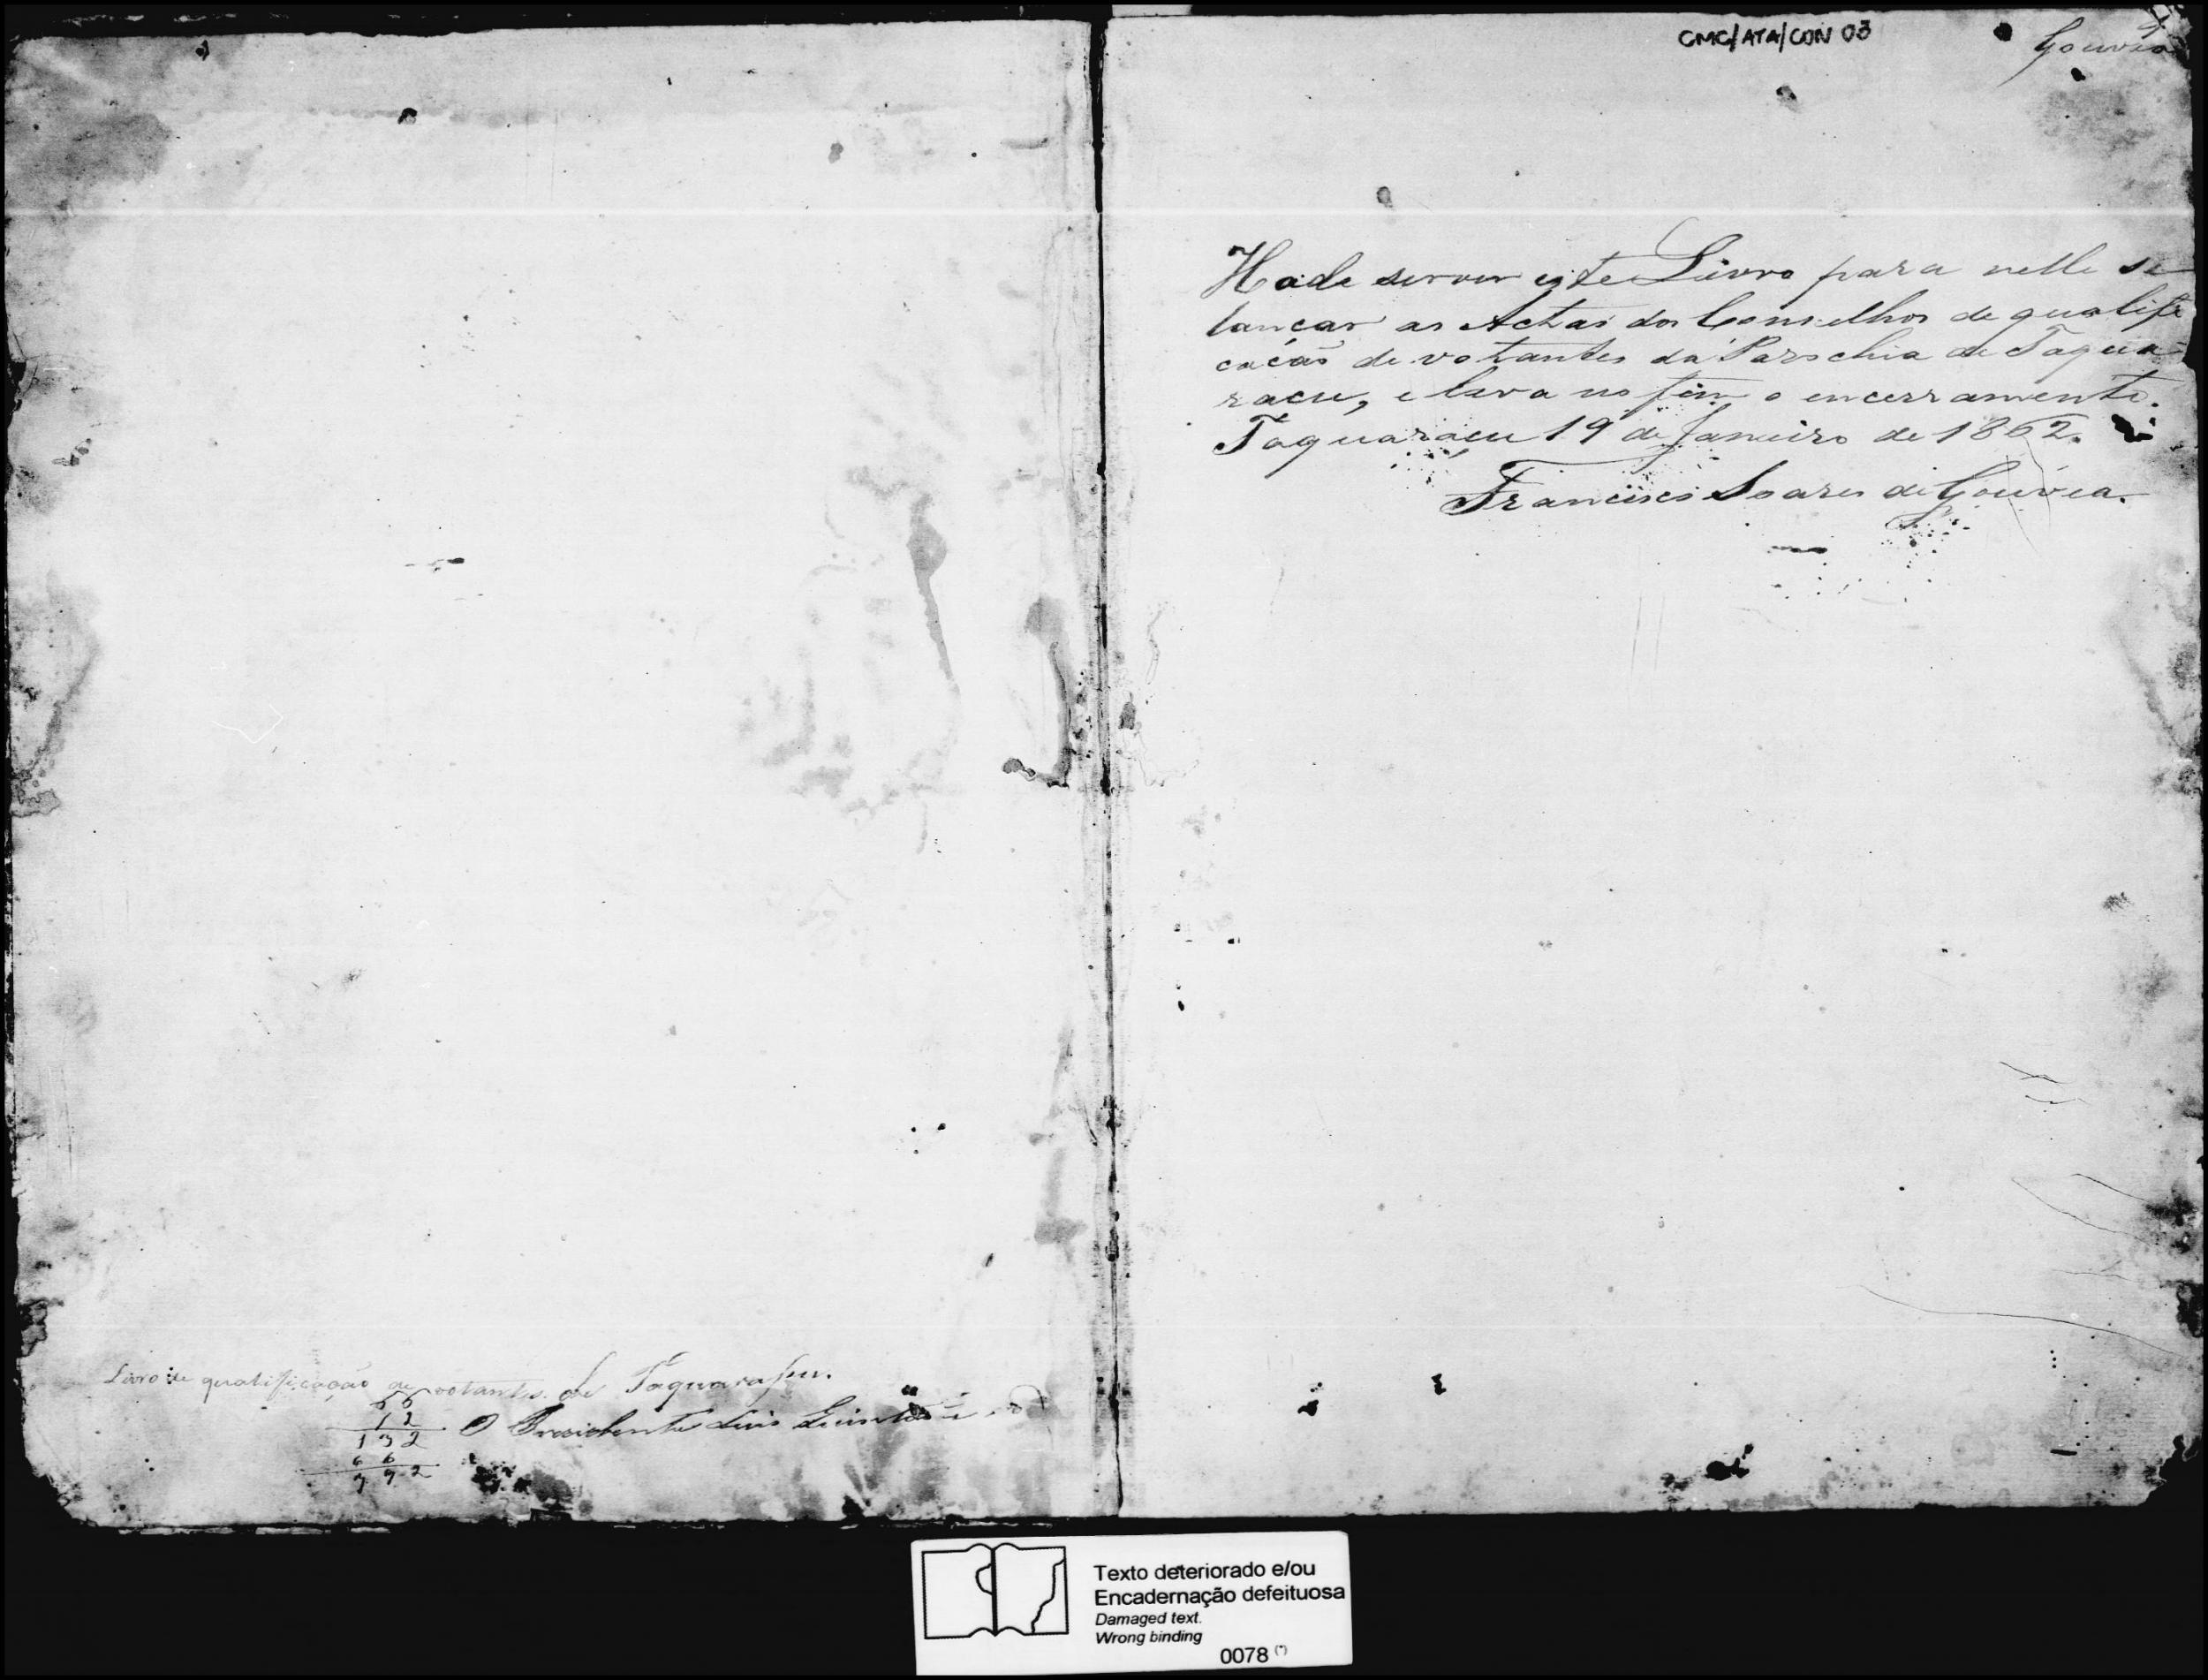 Livro de qualificação de votantes de Taquarassu.
66
12
132
66
792
O Presidente Luis
CMC/ATA/CON 03
1
Gouvêa
Hade servir este Livro para nelle se
lançar as Actas dos Conselhos de qualifi
cacão de votantes da Parochia de Taqua
racu, e leva no fim o encerramento.
Taquaraçu 19 de Janeiro de 1862.
Francisco Soares de Gouvêa.
Texto deteriorado e/ou
Encadernação defeituosa
Damaged text.
Wrong binding
0078 (*)